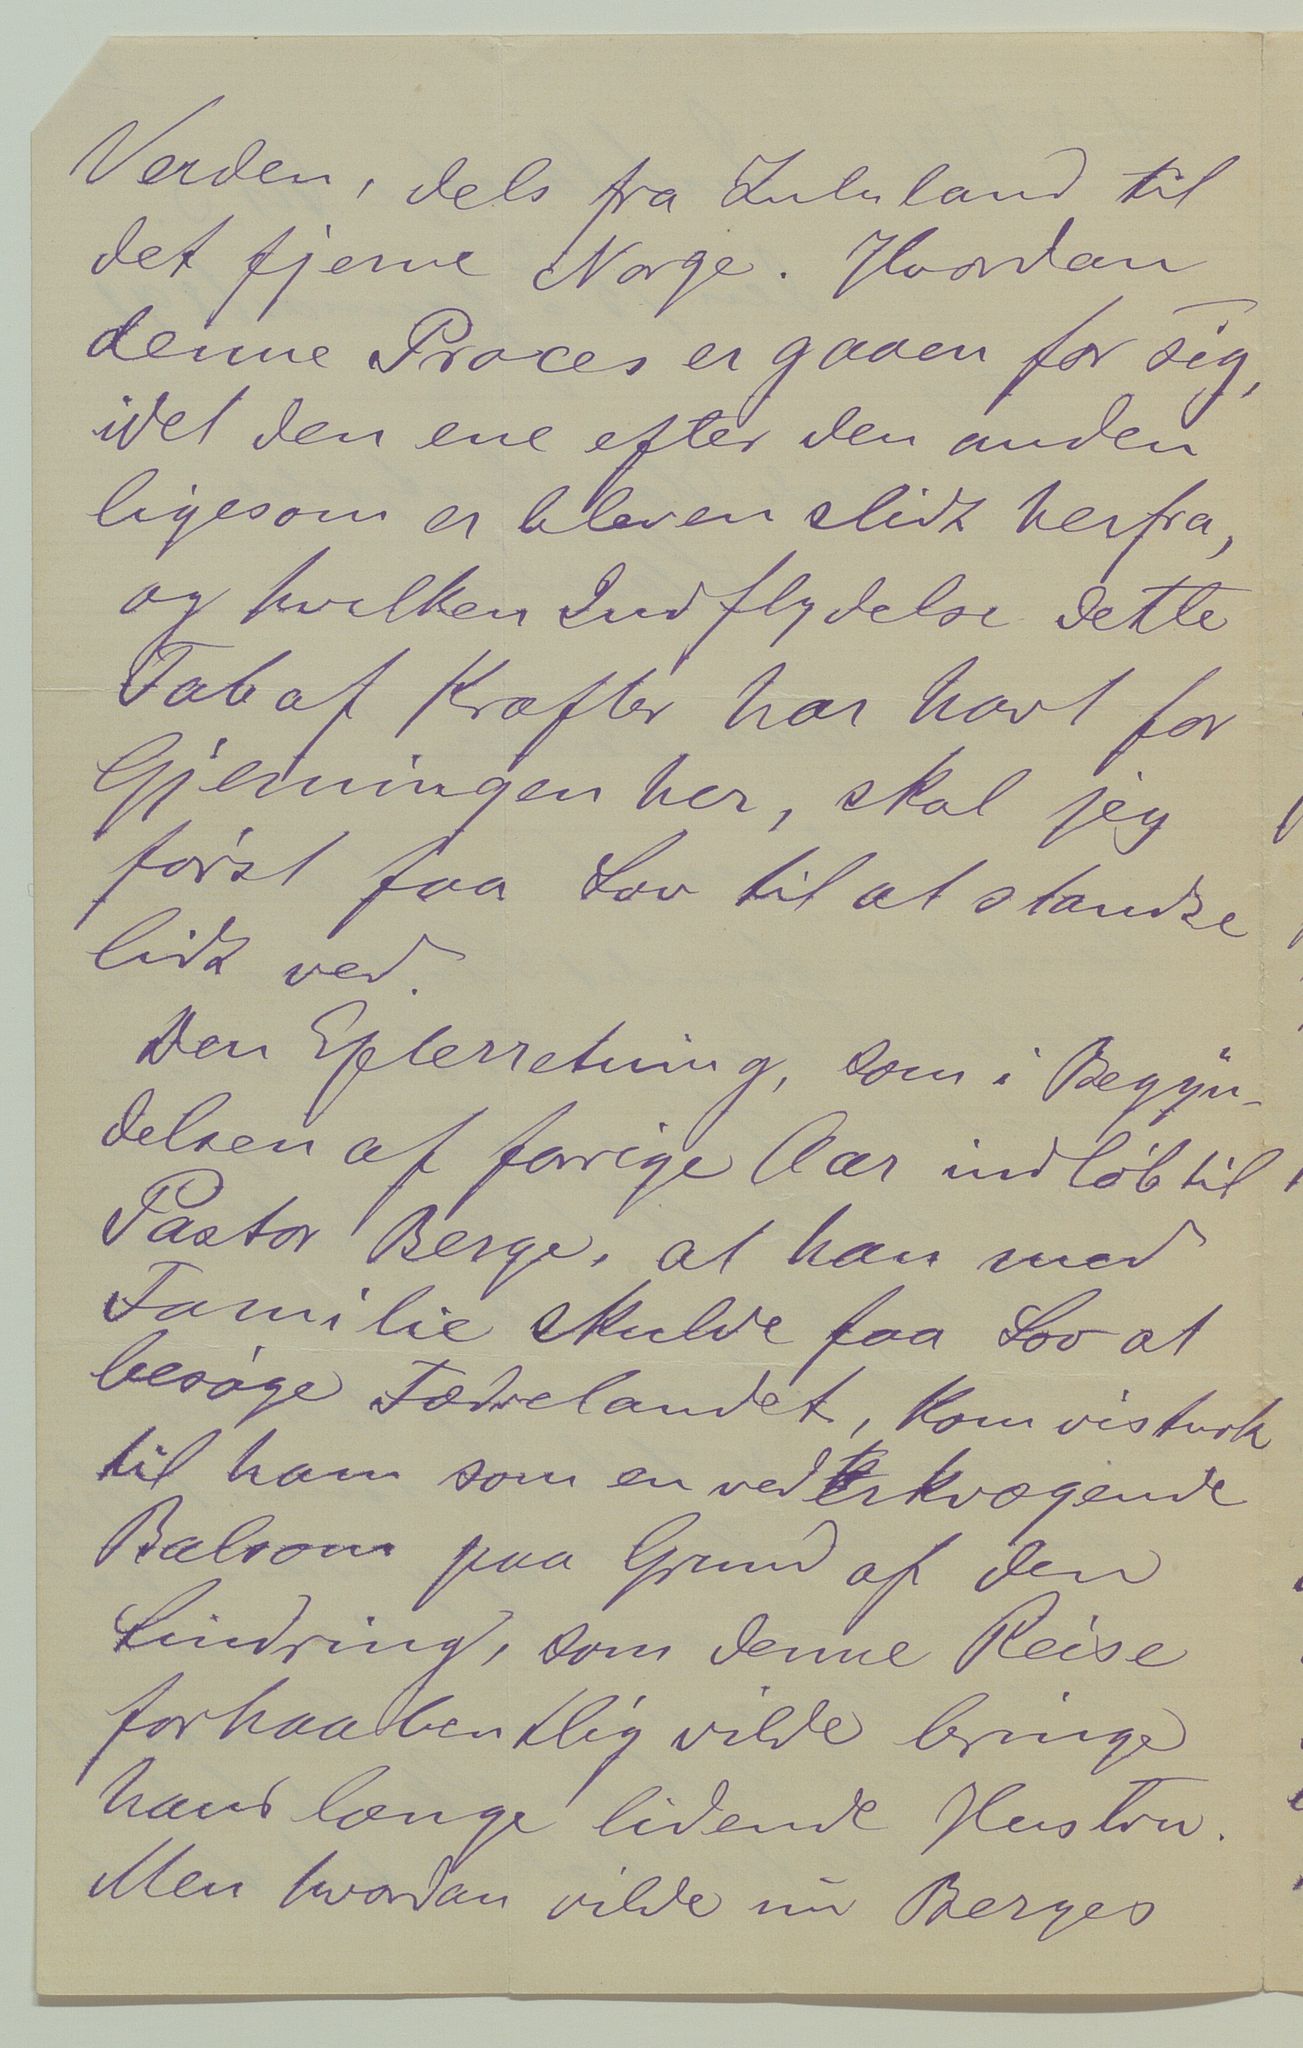 Verden, dels fra Zululand til
det fjerne Norge. Hvordan
denne Proces er gaaen for sig,
idet den ene efter den anden
ligesom er bleven slidt herfra,
og hvilken Indflydelse dette
Tab af Kræfter har havt for
Gjerningen her, skal jeg
først faa Lov til at standse
lidt ved.
Den Efterretning, som i Begyn-
delsen af forrige Aar indløb til
Pastor Berge, at han med
Familie skulde faa Lov at
besøge Fædrelandet, kom vistnok
til ham som en vederkvægende
Balsom paa Grund af den
Lindring, som denne Reise
forhaabentlig vilde bringe
hans længe lidende Hustru.
Men hvordan vilde nu Berges